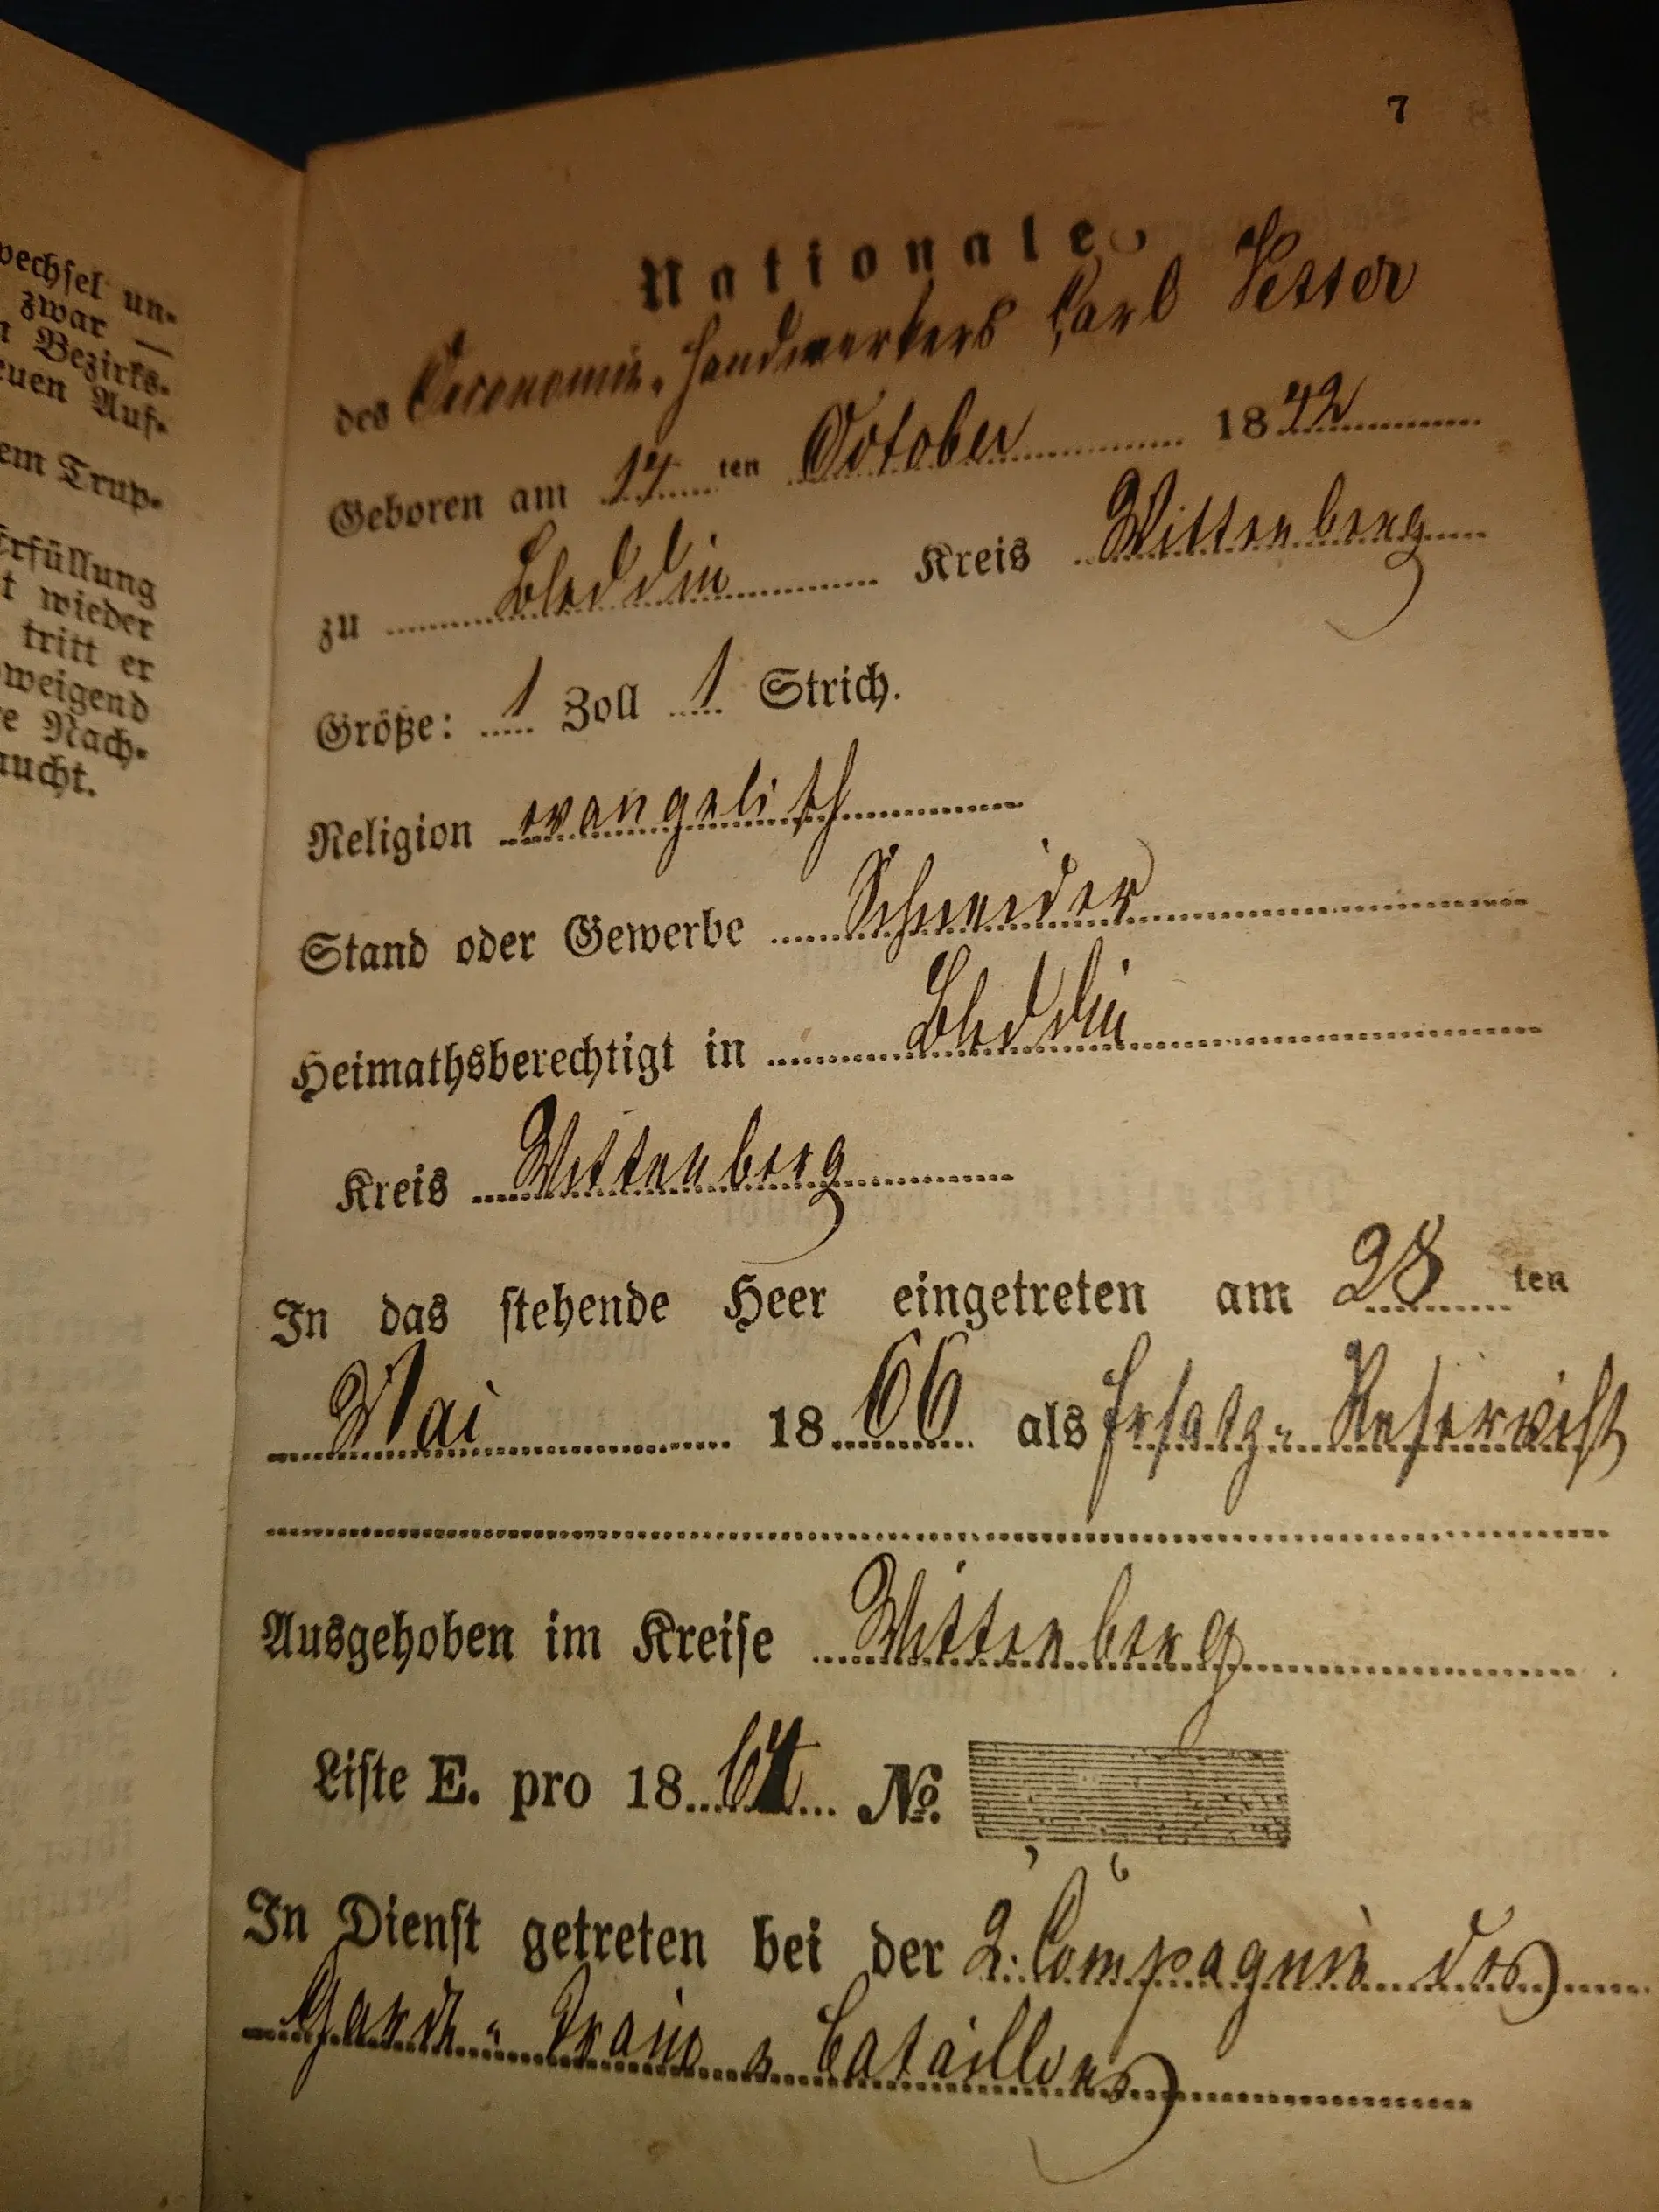 wechsel un-
zwar —
n Bezirks-
euen Auf-
em Trup-
Erfüllung
t wieder
tritt er
weigend
e Nach-
aucht.
7
Nationale
des Oeconomie-Handwerkers Carl Vetter
Geboren am 14ten October 1842
zu Bleddin Kreis Wittenberg
Größe: 1 Zoll 1 Strich.
Religion evangelisch
Stand oder Gewerbe Schneider
Heimathsberechtigt in Bleddin
Kreis Wittenberg
In das stehende Heer eingetreten am 28ten
Mai 1866 als Ersatz-Reservist
Ausgehoben im Kreise Wittenberg
Liste E. pro 1864 No.
In Dienst getreten bei der 2. Compagnie des
Garde-Train-Bataillons